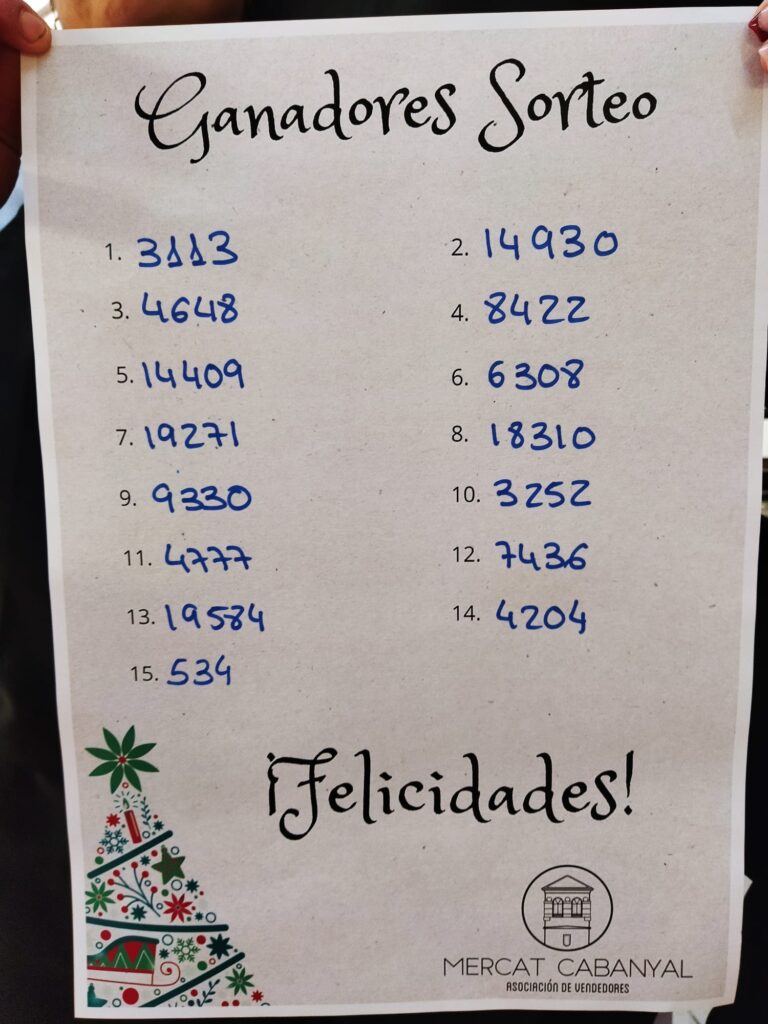 Ganadores Sorteo
1. 3113 2. 14930
3. 4648 4. 8422
5. 14409 6. 6308
7. 19271 8. 18310
9. 9330 10. 3252
11. 4777 12. 7436
13. 19584 14. 4204
15. 534
¡Felicidades!
MERCAT CABANYAL
ASOCIACIÓN DE VENDEDORES